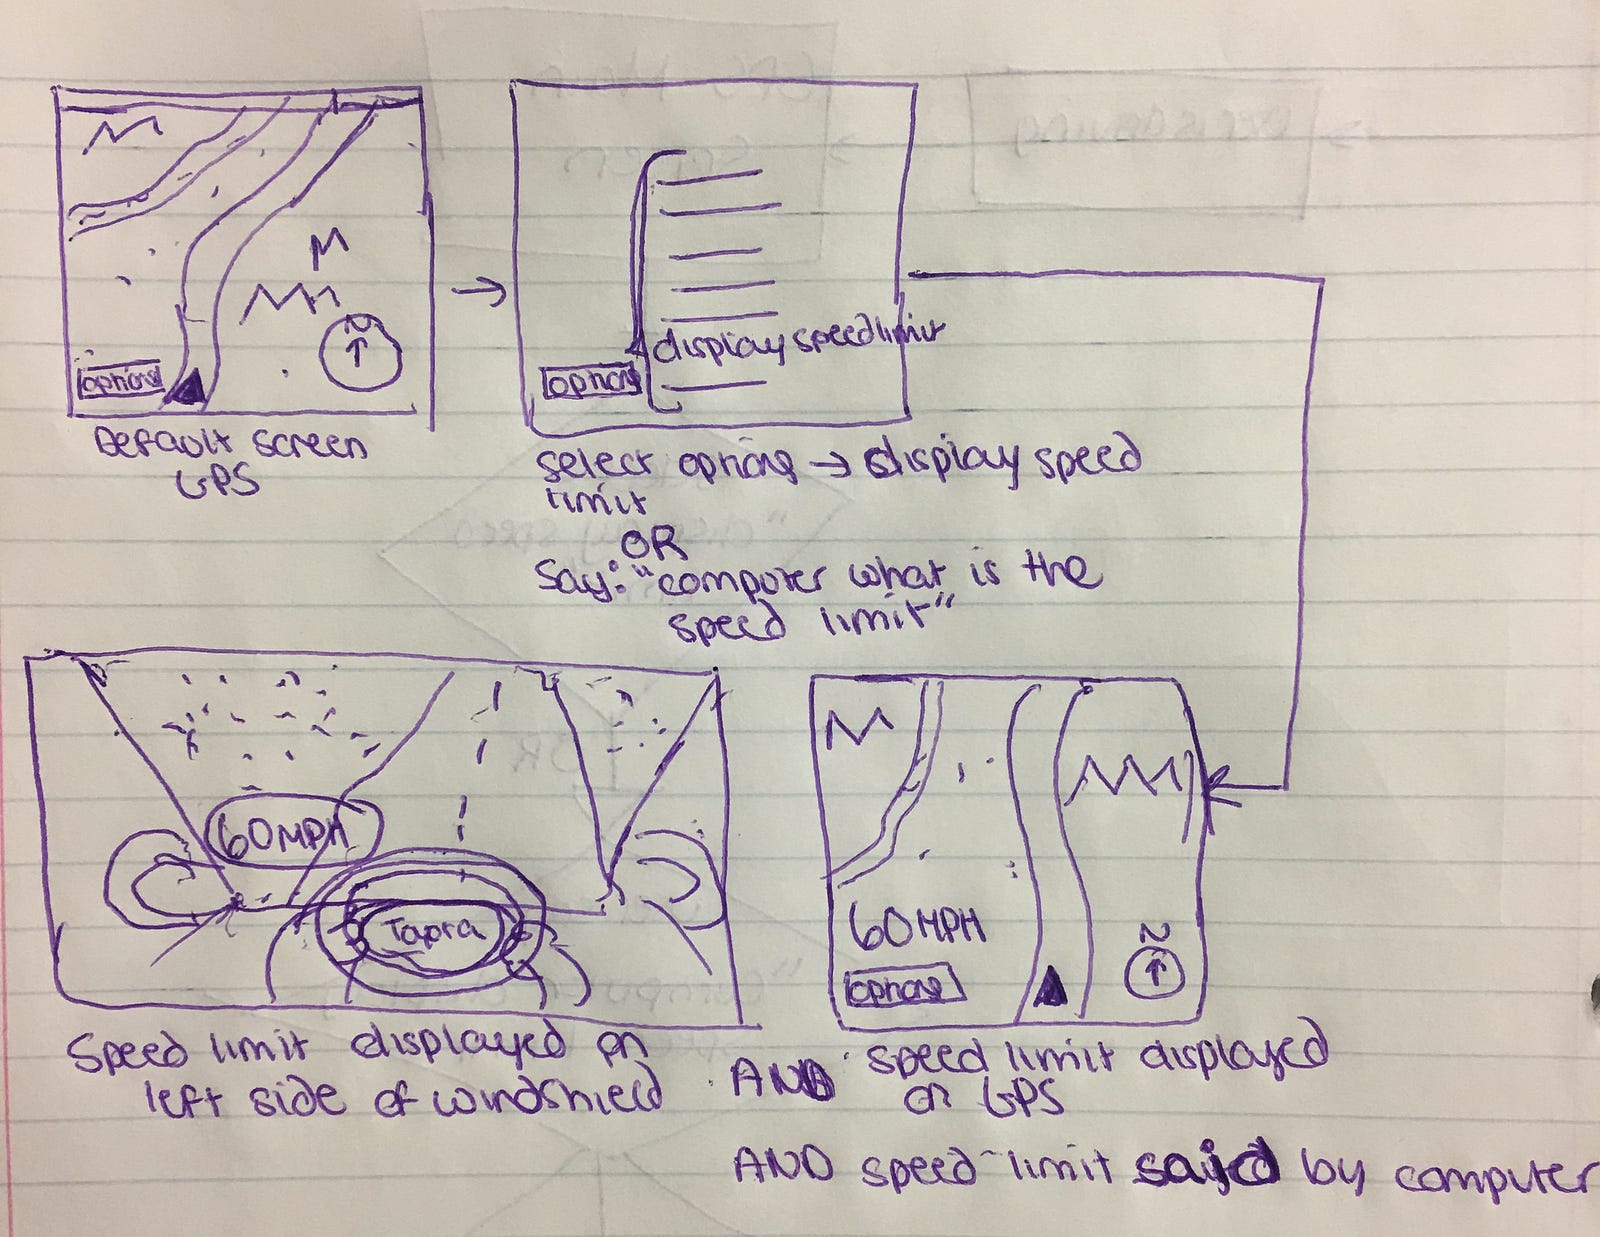 options
N
Default screen
GPS
display speed limit
options
select options → display speed
limit
OR
Say: "computer what is the
speed limit"
60MPH
Speed limit displayed on
left side of windshield
60MPH
options
N
AND speed limit displayed
on GPS
AND speed limit said by computer